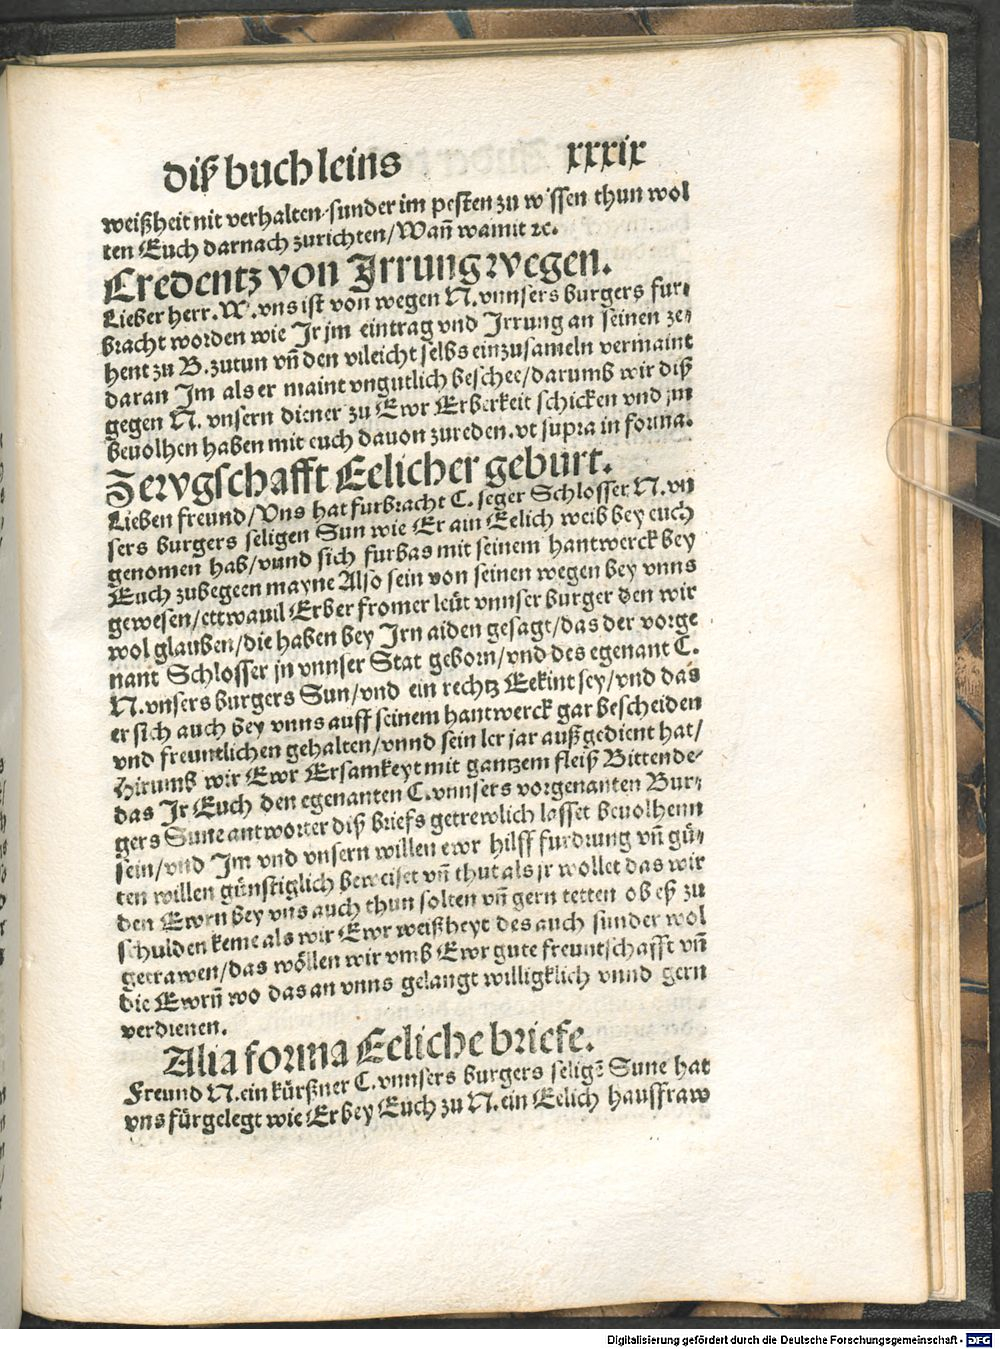 diß buchleins xxxix
weißheit nit verhalten/sunder im pesten zu wissen thun wol
ten Euch darnach zurichten/Wañ wamit ⁊c.
Credentz von Jrrung wegen.
Lieber herr. W. vns ist von wegen N. vnnsers burgers fur⸗
bracht worden wie Jr jm eintrag vnd Jrrung an seinen ze⸗
hent zu B. zutun vñ den vileicht selbs einzusameln vermaint
daran Jm als er maint vngutlich beschee/darumb wir diß
gegen N. vnsern diener zu Ewr Erberkeit schicken vnd jm
beuolhen haben mit euch dauon zureden. vt supra in forma.
Zeuvgschafft Eelicher geburt.
Lieben freund/Vns hat furbracht C. seger Schlosser N. vn
sers burgers seligen Sun wie Er ain Eelich weib bey euch
genomen hab/vnnd sich furbas mit seinem hantwerck bey
Euch zubegeen mayne Also sein von seinen wegen bey vnns
gewesen/ettwauil Erber fromer leüt vnnser burger den wir
wol glauben/die haben bey Jrn aiden gesagt/das der vorge
nant Schlosser jn vnnser Stat geborn/vnd des egenant C.
N. vnsers burgers Sun/vnd ein rechtz Eekint sey/vnd das
er sich auch bey vnns auff seinem hantwerck gar bescheiden
vnd freuntlichen gehalten/vnnd sein ler jar außgedient hat/
Hirumb wir Ewr Ersamkeyt mit gantzem fleiß Bittende⸗
das Jr Euch den egenanten C. vnnsers vorgenanten Bur⸗
gers Sune antworter diß briefs getrewlich lasset beuolhenn
sein/vnd Jm vnd vnsern willen ewr hilff furdrung vñ gü⸗
ten willen günstiglich beweiset vñ thut als jr wollet das wir
den Ewrn bey vns auch thun solten vñ gern tetten ob eß zu
schulden keme als wir Ewr weißheyt des auch sunder wol
getrawen/das wöllen wir vmb Ewr gute freuntschafft vñ
die Ewrñ wo das an vnns gelangt willigklich vnnd gern
verdienen.
Alia forma Eeliche briefe.
Freund N. ein kürßner C. vnnsers burgers seligē Sune hat
vns fürgelegt wie Er bey Euch zu N. ein Eelich haussfraw
Digitalisierung gefördert durch die Deutsche Forschungsgemeinschaft - DFG